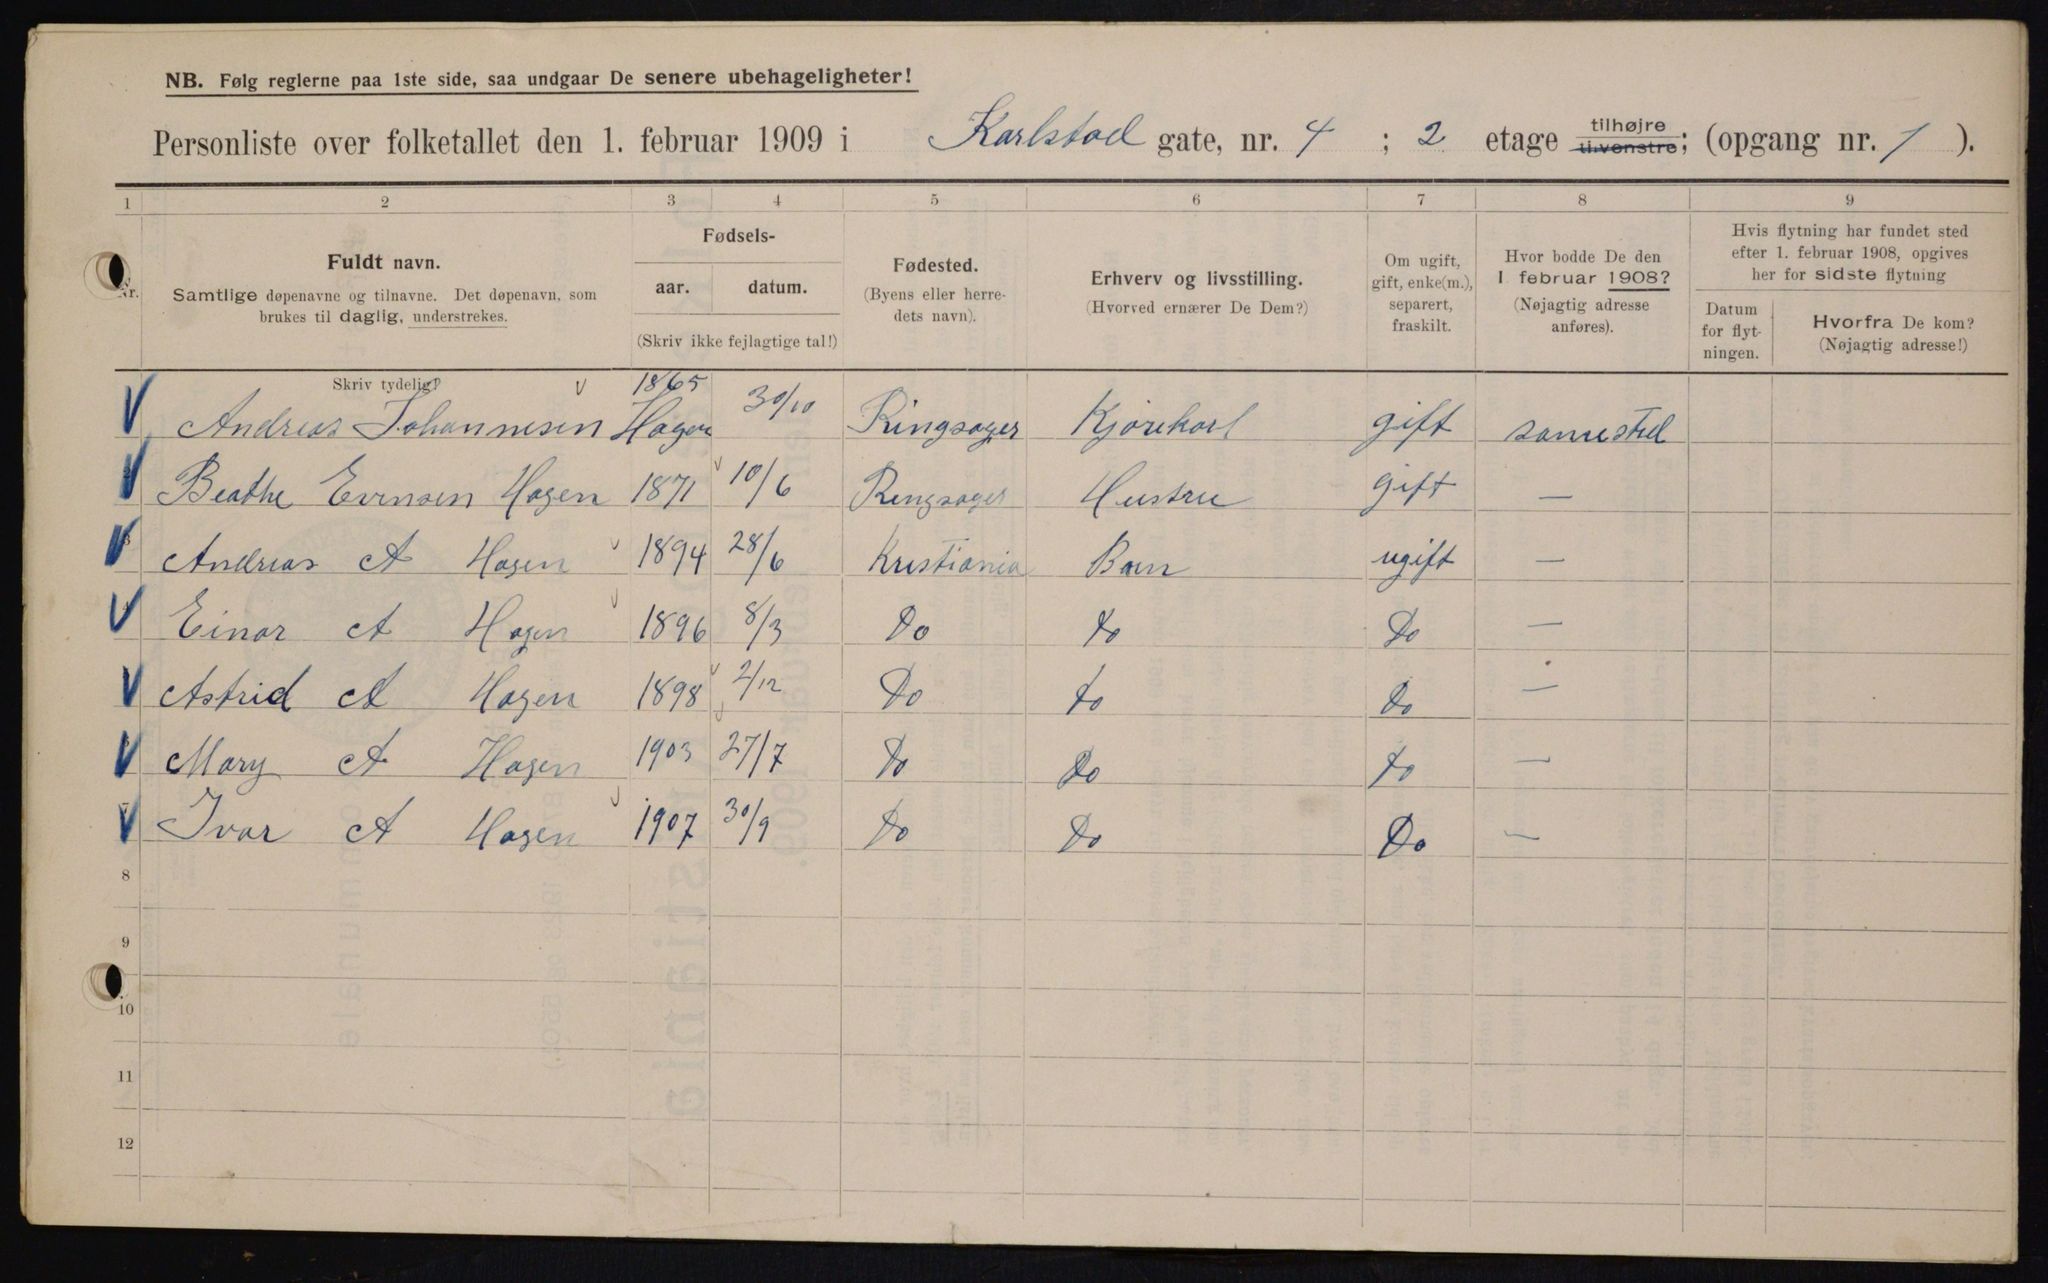 NB. Følg reglerne paa 1ste side, saa undgaar De senere ubehageligheter!
Personliste over folketallet den 1. februar 1909 i Karlstad gate, nr. 4 ; 2 etage tilhøjre tilvenstre; (opgang nr. 1 ).
1 2 3 4 5 6 7 8 9
Nr.
Fuldt navn.
Samtlige døpenavne og tilnavne. Det døpenavn, som
brukes til daglig, understrekes.
Skriv tydelig!
Fødsels-
aar. datum.
(Skriv ikke fejlagtige tal!)
Fødested.
(Byens eller herre-
dets navn).
Erhverv og livsstilling.
(Hvorved ernærer De Dem?)
Om ugift,
gift, enke(m.),
separert,
fraskilt.
Hvor bodde De den
1 februar 1908?
(Nøjagtig adresse
anføres).
Hvis flytning har fundet sted
efter 1. februar 1908, opgives
her for sidste flytning
Datum
for flyt-
ningen.
Hvorfra De kom?
(Nøjagtig adresse!)
Andreas Johannesen Hagen 1865 30/10 Ringsager Kjørekarl gift samested
Beathe Evensen Hagen 1871 10/6 Ringsager Hustru gift —
3 Andreas A Hagen 1894 28/6 Kristiania Barn ugift —
4 Einar A Hagen 1896 8/3 Do do Do —
Astrid A Hagen 1898 2/12 Do do Do —
Mary A Hagen 1903 27/7 Do Do do —
7 Ivar A Hagen 1907 30/9 Do Do Do —
8
9
10
11
12